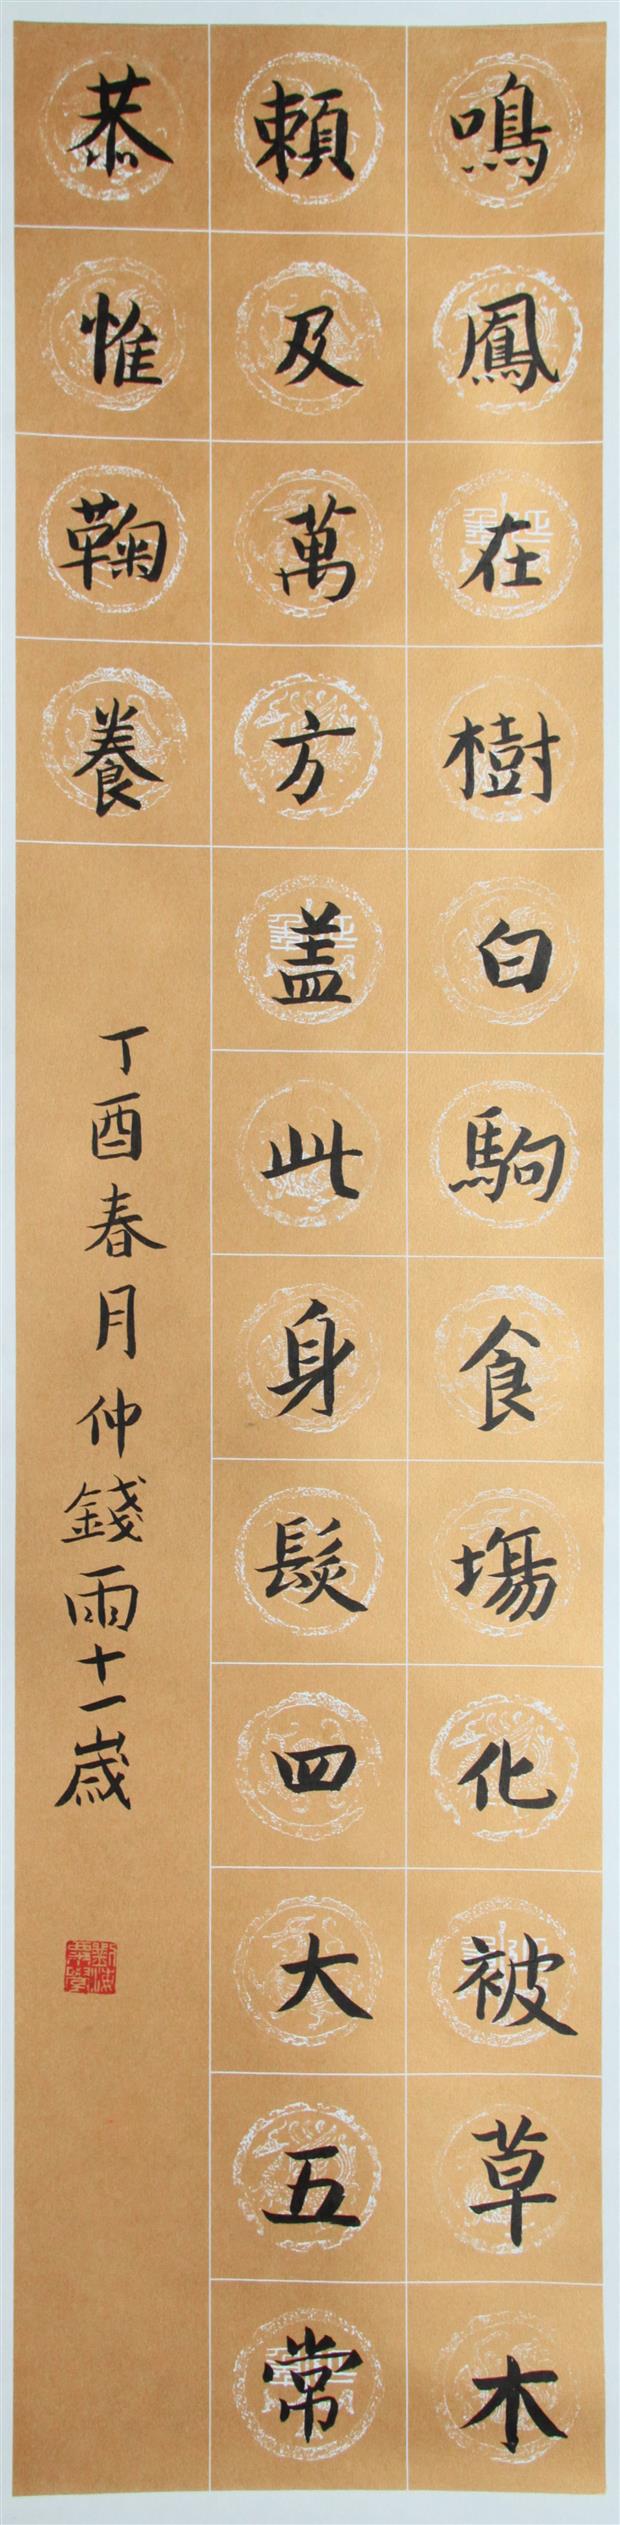 鳴鳳在樹白駒食場化被草木
賴及萬方盖此身髮四大五常
恭惟鞠養
丁酉春月仲錢雨十一歲